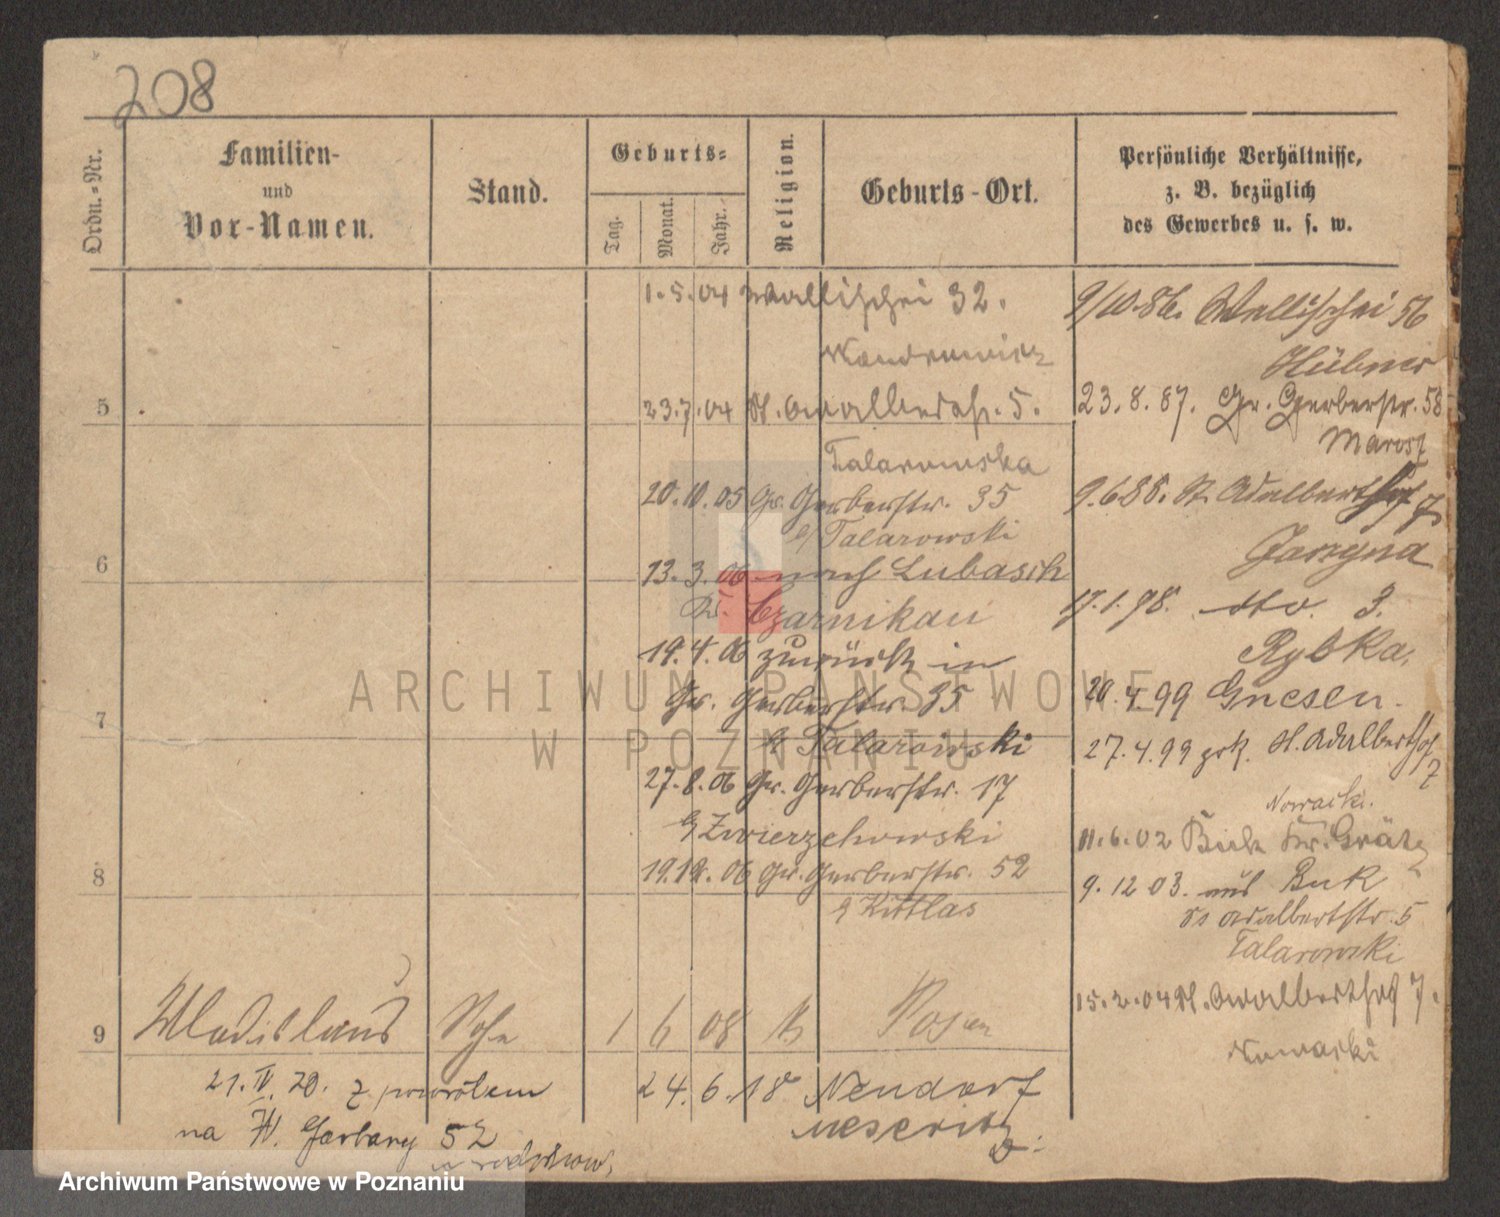 208
Ordn.-Nr.
Familien-
und
Vor-Namen.
Stand.
Geburts-
Tag.
Monat.
Jahr.
Religion.
Geburts-Ort.
Persönliche Verhältnisse,
z. B. bezüglich
des Gewerbes u. s. w.
1.5.04 Wallischei 32.
23.7.04 St. Adalbertstr. 5.
Talarowska
20.10.05 Gr. Gerberstr. 35
b/ Talarowski
13.3.06 nach Lubasch
Kr. Czarnikau
19.4.06 zurück in
Gr. Gerberstr. 35
b/ Talarowski
27.8.06 Gr. Gerberstr. 17
b/ Zwierzchowski
19.12.06 Gr. Gerberstr. 52
b/ Kittlas
5
6
7
8
9 Wladislaus Sohn 1 6 08 k Posen
24.6.18 Neudorf
Meseritz
21. IV. 20. z powrotem
na W. Garbary 52
9/10.86. Wallischei 56
Hübner
23.8.87. Gr. Gerberstr. 58
Marosz
9.6.88. St. Adalberthof 7
Jarzyna
17.1.98. dto. 3.
Rybka,
20.4.99 Gnesen.
27.4.99 zrk. St. Adalberthof 7
Nowacki.
11.6.02 Buk Kr. Grätz
9.12.03. aus Buk
St Adalbertstr. 5
Talarowski
15.2.04 St. Adalberthof 7.
Nowacki
ARCHIWUM PAŃSTWOWE
W POZNANIU
Archiwum Państwowe w Poznaniu